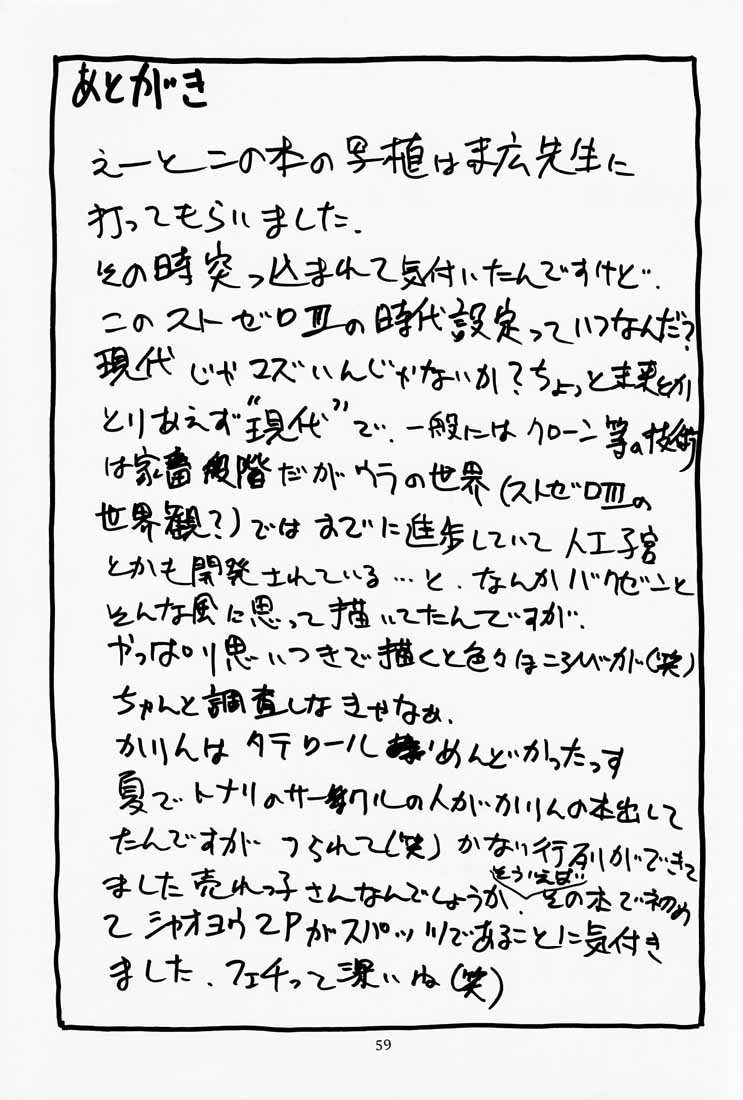 あとがき
えーとこの本の写植はま広先生に
打ってもらいました.
その時突っ込まれて気付いたんですけど.
このストゼロⅢの時代設定っていつなんだ?
現代じゃマズいんじゃないか?ちょっと未来とか
とりあえず“現代”で.一般にはクローン等の技術
は家畜段階だがウラの世界(ストゼロⅢの
世界観?)ではすでに進歩していて人工子宮
とかも開発されている…と.なんかバクゼーンと
そんな風に思って描いてたんですが.
やっぱり思いつきで描くと色々ほころびが(笑)
ちゃんと調査しなきゃなぁ.
かりんはタテロールめんどかったっす
夏でトナリのサークルの人がかりんの本出して
たんですがつられて(笑)かない行列ができて
ました売れっ子さんなんでしょうか.そういえばその本で初め
てシャオヨウ2Pがスパッツであることに気付き
ました.フェチって深いね(笑)
59